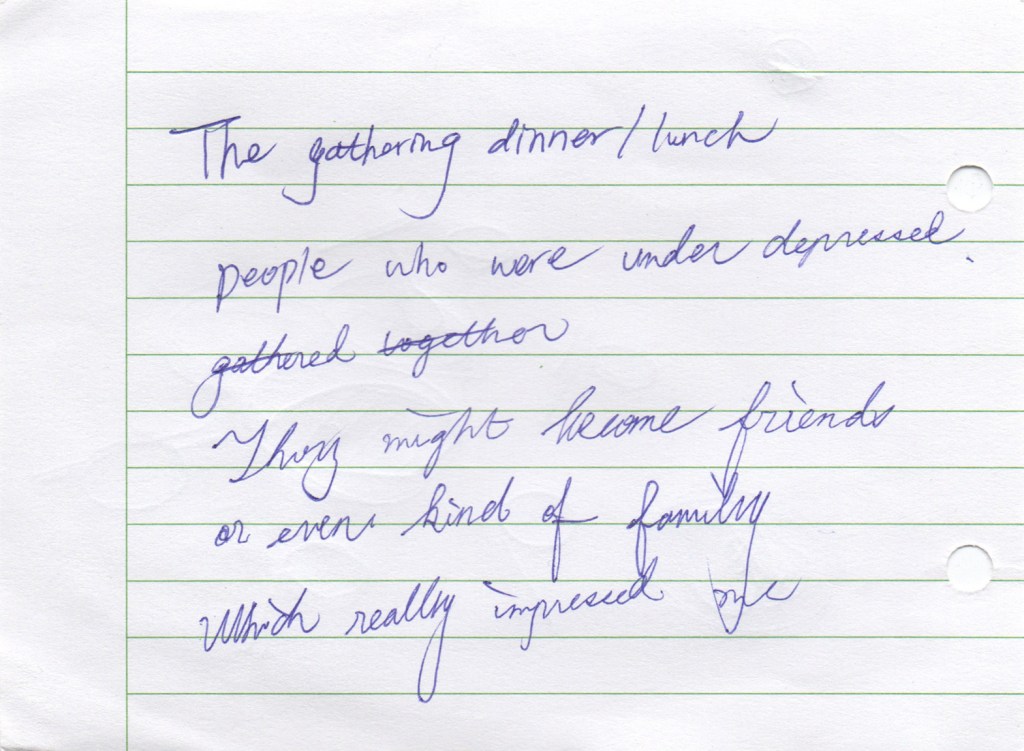 The gathering dinner/lunch
people who were under depressed.
gathered together
They might become friends
or even kind of family
Which really impressed me